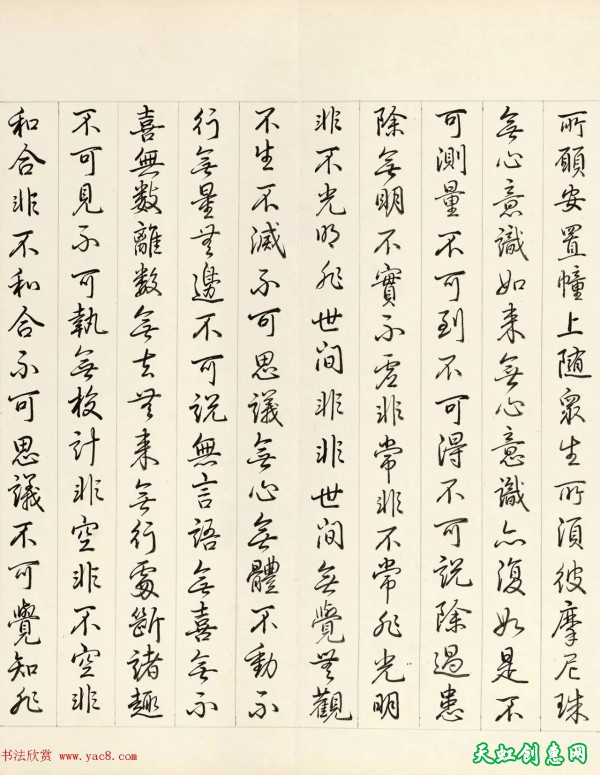 所願安置幢上随眾生所須彼摩尼珠
無心意識如来無心意識亦復如是不
可測量不可到不可得不可説除過患
除無明不實不虚非常非不常非光明
非不光明非世间非非世间無覺無觀
不生不滅不可思議無心無體不動不
行無量無邊不可説無言語無喜無不
喜無数離数無去無来無行處斷諸趣
不可見不可執無校計非空非不空非
和合非不和合不可思議不可覺知非
书法欣赏 www.yac8.com
天虹创惠网